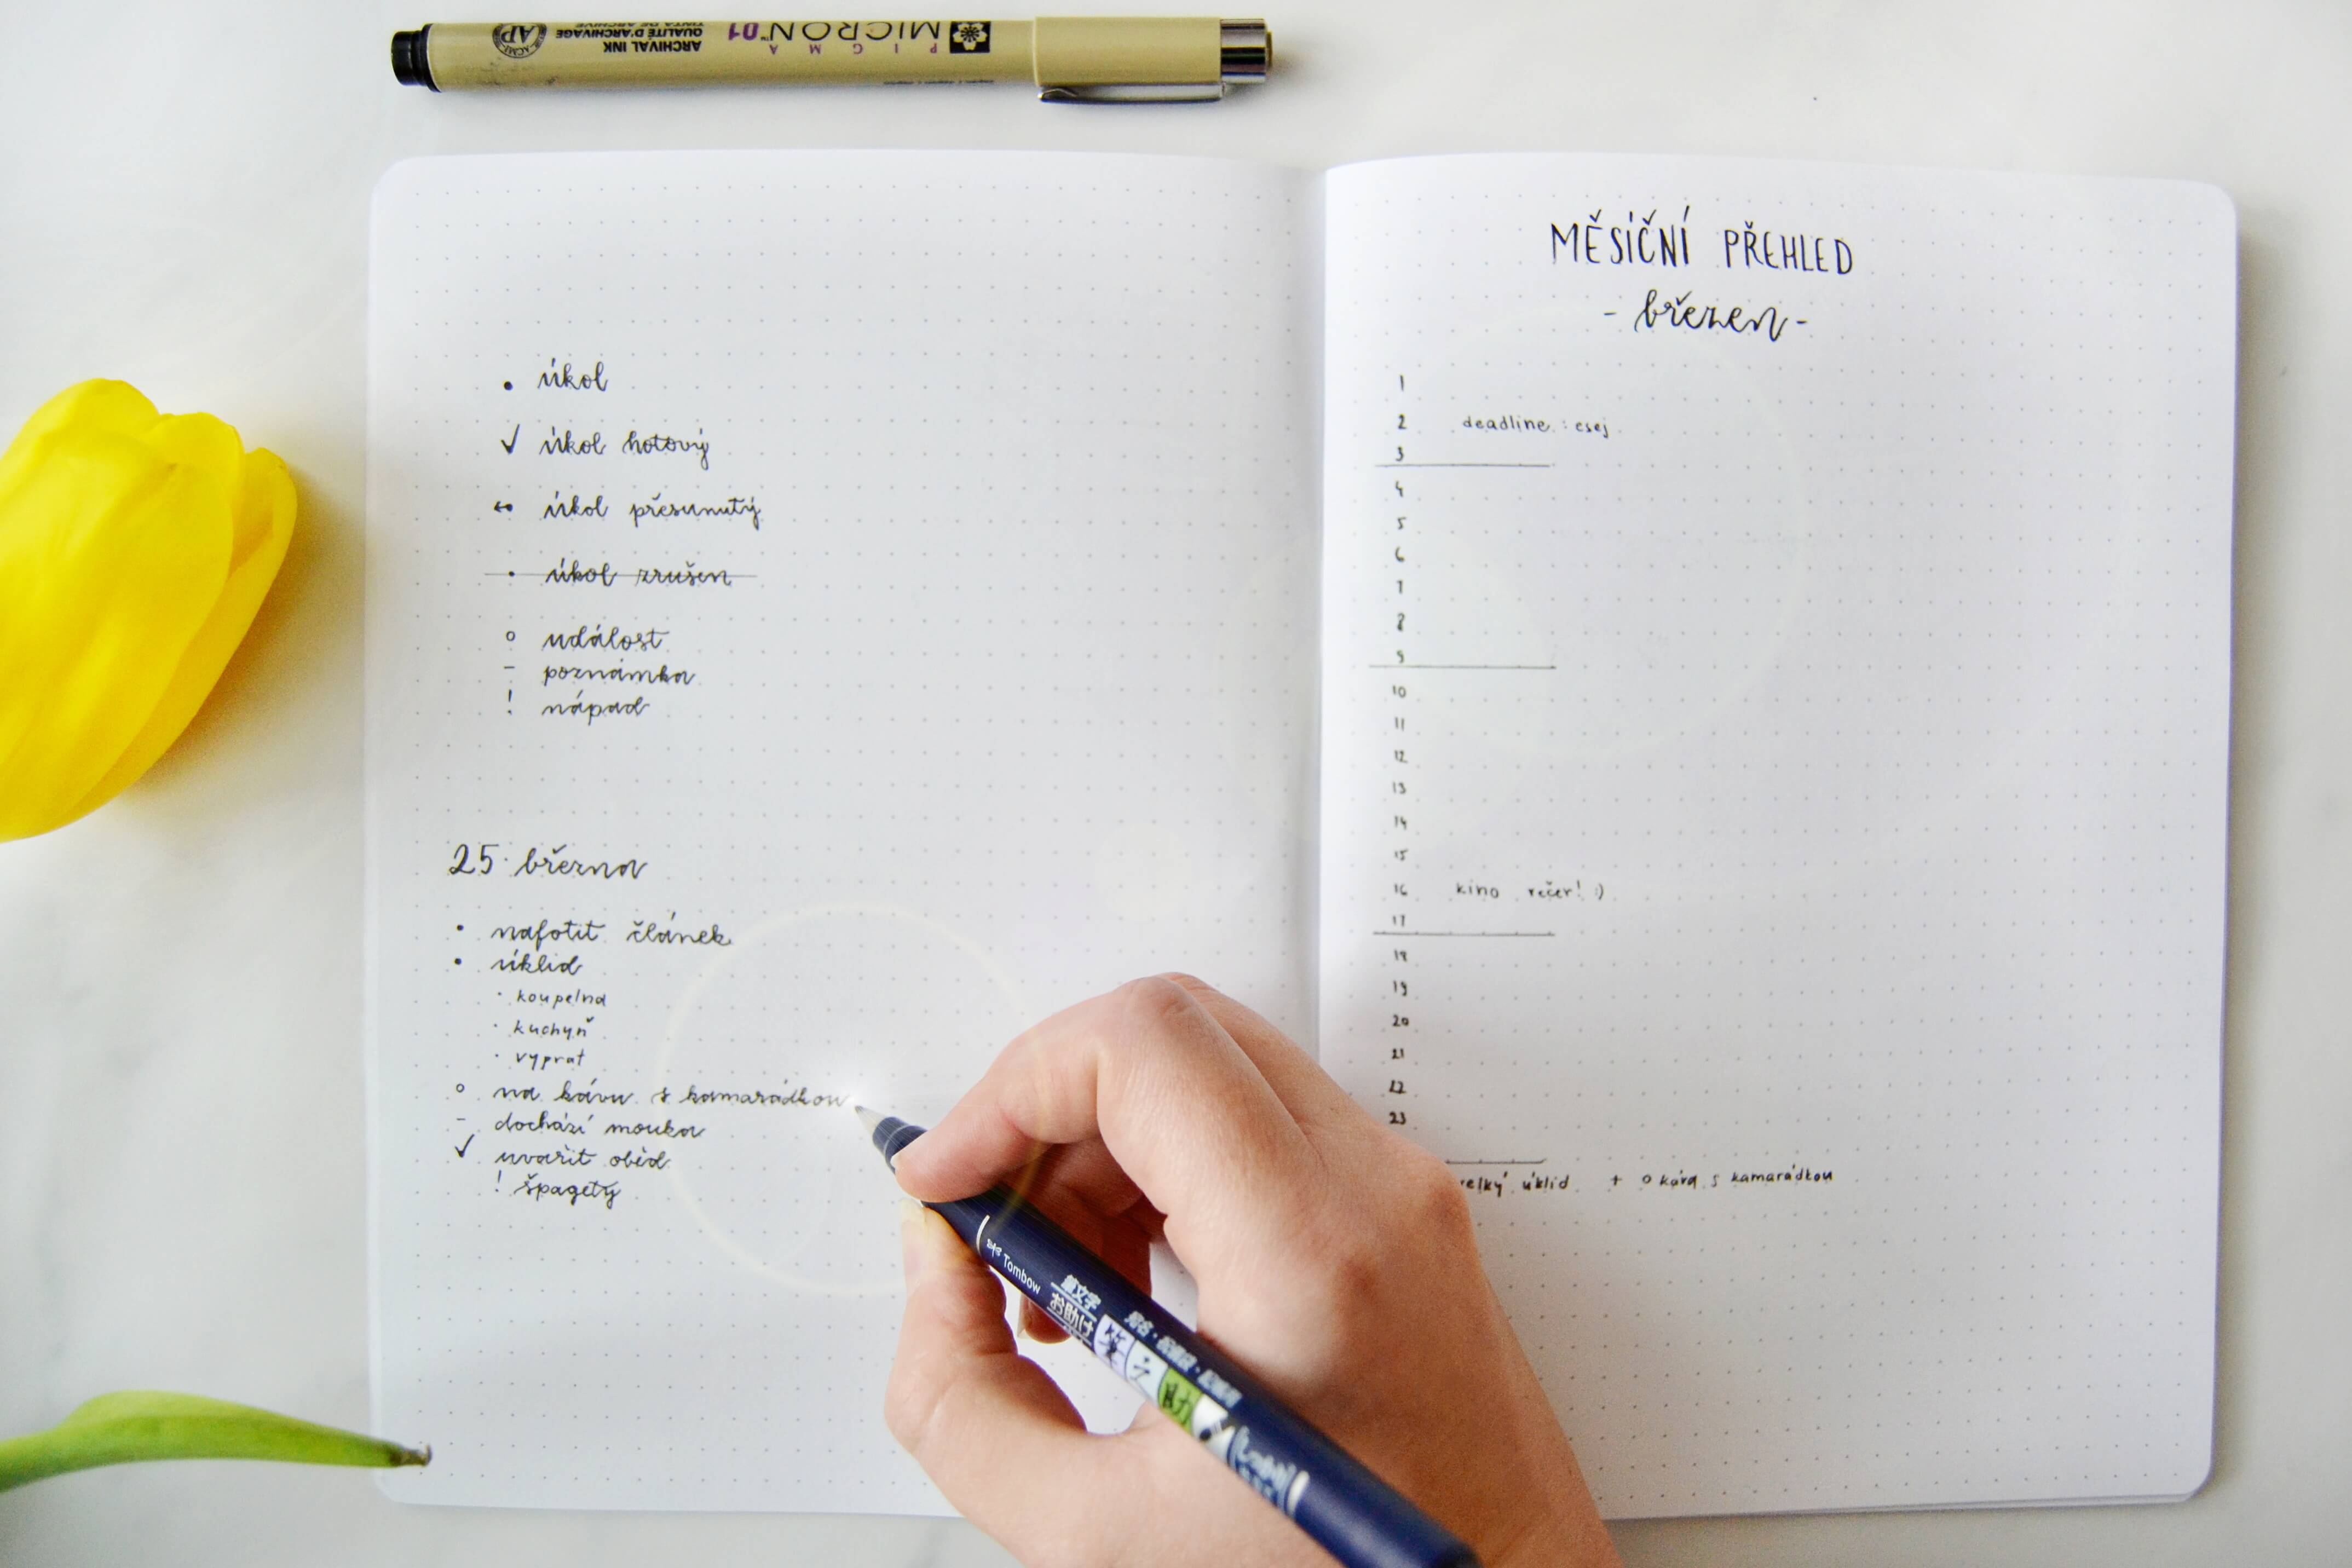 PIGMA
MICRON™ 01
ARCHIVAL INK
QUALITÉ D'ARCHIVAGE
TINTA DE ARCHIVE
ACMI
AP
• úkol
✓ úkol hotový
↔ úkol přesunutý
• úkol zrušen
o událost
– poznámka
! nápad
25. března
• nafotit článek
• úklid
· koupelna
· kuchyň
· vyprat
o na kávu s kamarádkou
– dochází mouka
✓ uvařit oběd
! špagety
MĚSÍČNÍ PŘEHLED
- březen -
1
2 deadline: esej
3
4
5
6
7
8
9
10
11
12
13
14
15
16 kino večer! :)
17
18
19
20
21
22
23
velký úklid + o káva s kamarádkou
Tombow
筆文字
お助け
筆之助